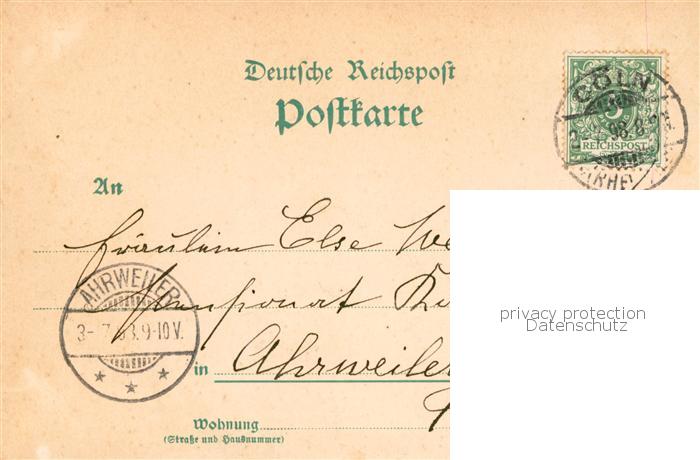 Deutsche Reichspost
Postkarte
CÖLN
5
REICHSPOST
98.8
(RHEIN)
An
Fräulein Else We
AHRWEILER
Pensionat
3-7 98.9-10V.
privacy protection
Datenschutz
in Ahrweiler
Wohnung
(Straße und Hausnummer)